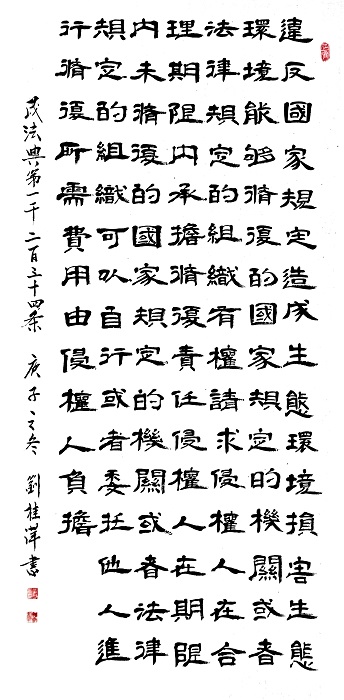 違反國家規定造成生態環境損害生態
環境能够脩復的國家規定的機關或者
法律規定的組織有權請求侵權人在合
理期限内承擔脩復責任侵權人在期限
内未脩復的國家規定的機關或者法律
規定的組織可以自行或者委托他人進
行脩復所需費用由侵權人負擔
民法典第一千二百三十四条 庚子之冬 劉桂萍書